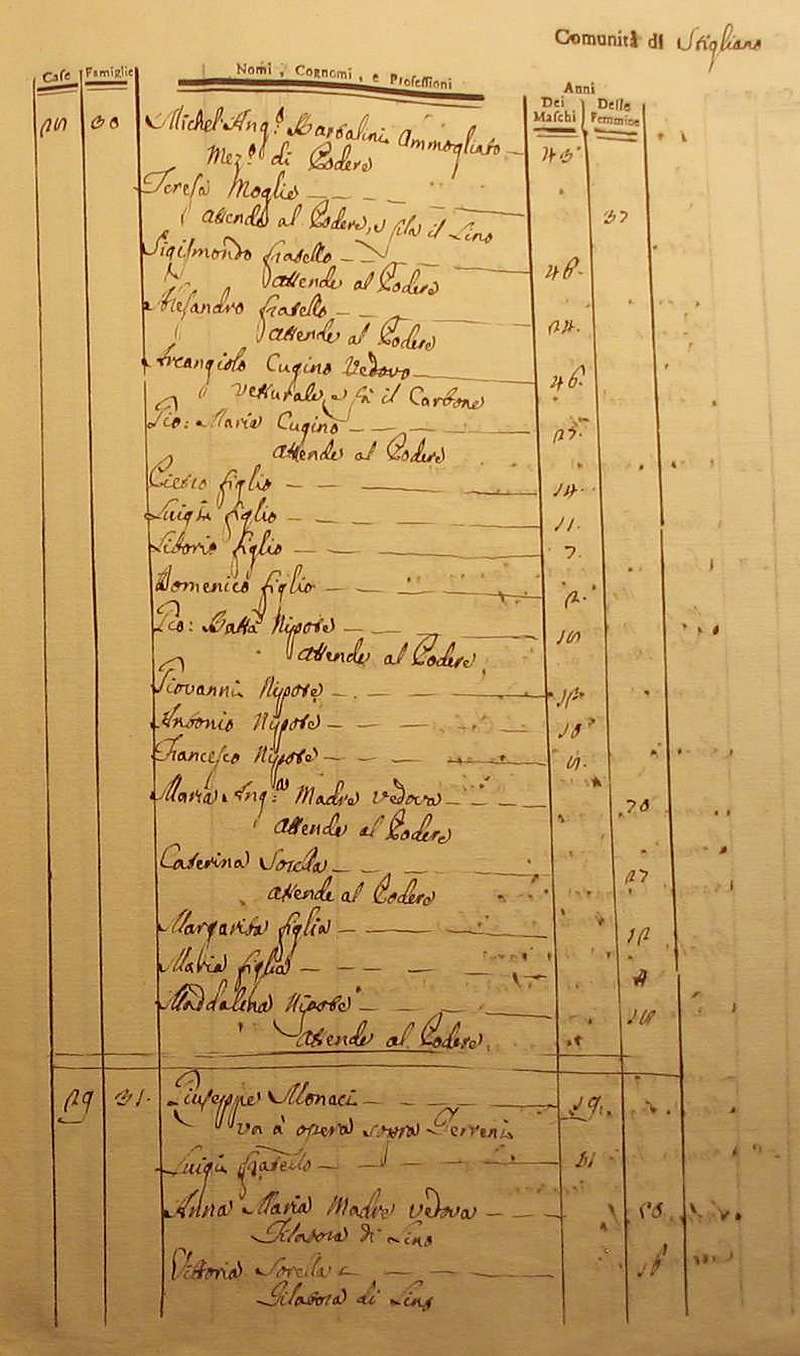 Comunità di Stigliano
Case Famiglie Nomi, Cognomi, e Professioni Anni
Dei Maschi Delle Femmine
Michel'Ang.º Bartalini Ammogliato
Mez.º di Podere
Teresa Moglie 37
Attende al Podere, e fila il Lino
Sigismondo fratello 46.
attende al Podere
Alesandro fratello 24.
attende al Podere
Arcangiolo Cugino Vedovo 46.
Vetturale, e fà il Carbone
Gio: Maria Cugino 27.
attende al Podere
Pietro figlio 14.
Luigi figlio 11.
Liborio figlio 7.
Domenico figlio 2.
Gio: Batta Nipote
attende al Podere
Giovanni Nipote
Antonio Nipote
Francesco Nipote
Maria Ang.ª Madre vedova 70
attende al Podere
Caterina Sorella 27
attende al Podere
Margarita figlia 12
Maria figlia
Maddalena Nipote
attende al Podere
29 31. Giuseppe Monaci 19.
va à opera sopra Terreni
Luigi fratello
Anna Maria Madre vedova 50.
Filatora di Lino
Vittoria Sorella 16
Filatora di Lino